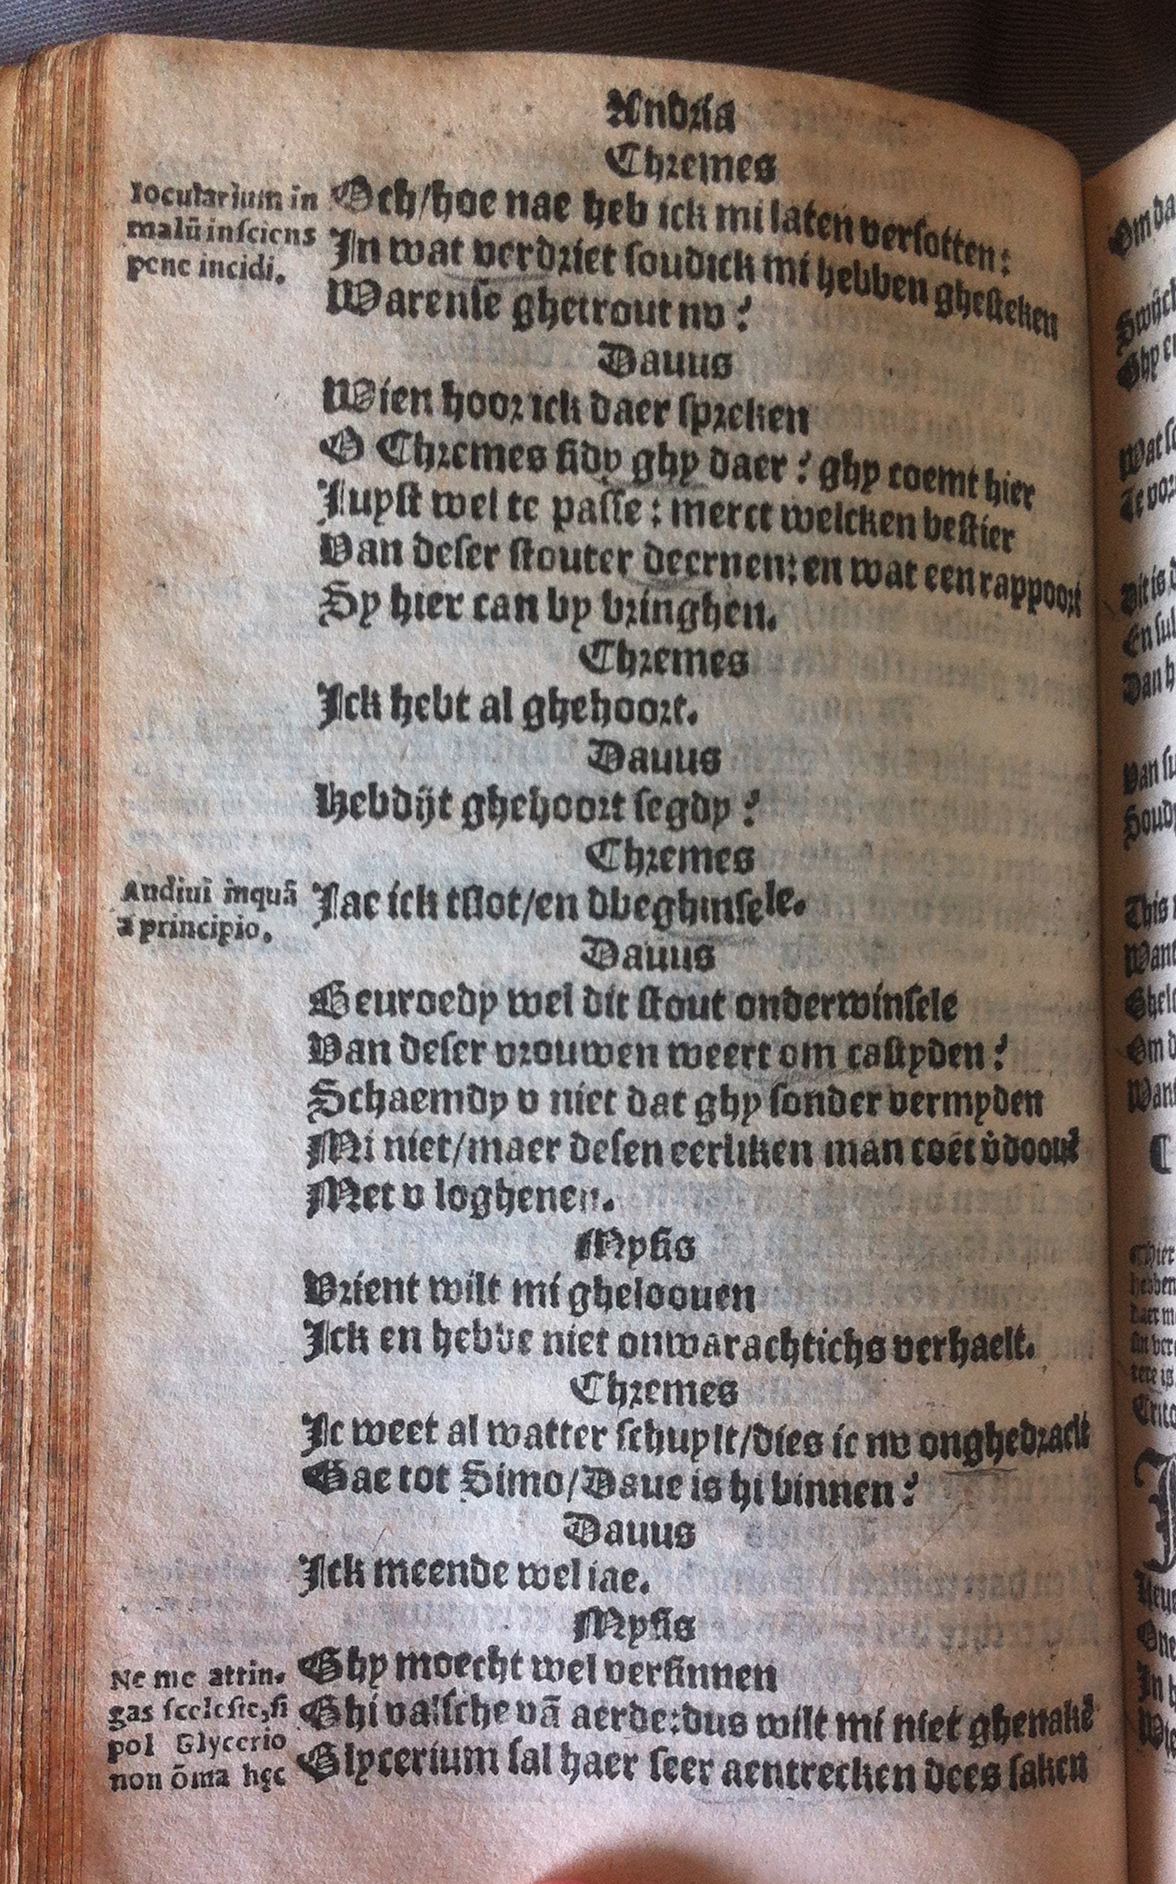 Andria
Chremes
Iocularium in
malū insciens
pene incidi.
Och/hoe nae heb ick mi laten versotten:
In wat verdriet soudick mi hebben ghesteken
Warense ghetrout nv?
Dauus
Wien hoor ick daer spreken
O Chremes sidy ghy daer? ghy coemt hier
Iuyst wel te passe: merct welcken bestier
Van deser stouter deernen: en wat een rappoort
Sy hier can by bringhen.
Chremes
Ick hebt al ghehoort.
Dauus
Hebdijt ghehoort segdy?
Chremes
Audiui inquā
a principio.
Iae ick tslot/en dbeghinsele.
Dauus
Bevroedy wel dit stout onderwinsele
Van deser vrouwen weert om castyden?
Schaemdy v niet dat ghy sonder vermyden
Mi niet/maer desen eerliken man coēt v̓doouē
Met v loghenen.
Mysis
Vrient wilt mi gheloouen
Ick en hebbe niet onwarachtichs verhaelt.
Chremes
Ic weet al watter schuylt/dies ic nv onghedraelt
Gae tot Simo/Daue is hi binnen?
Dauus
Ick meende wel iae.
Mysis
Ne me attin-
gas sceleste, si
pol Glycerio
non ōīa hęc
Ghy moecht wel versinnen
Ghi valsche vā aerde: dus wilt mi niet ghenakē
Glycerium sal haer seer aentrecken dees saken